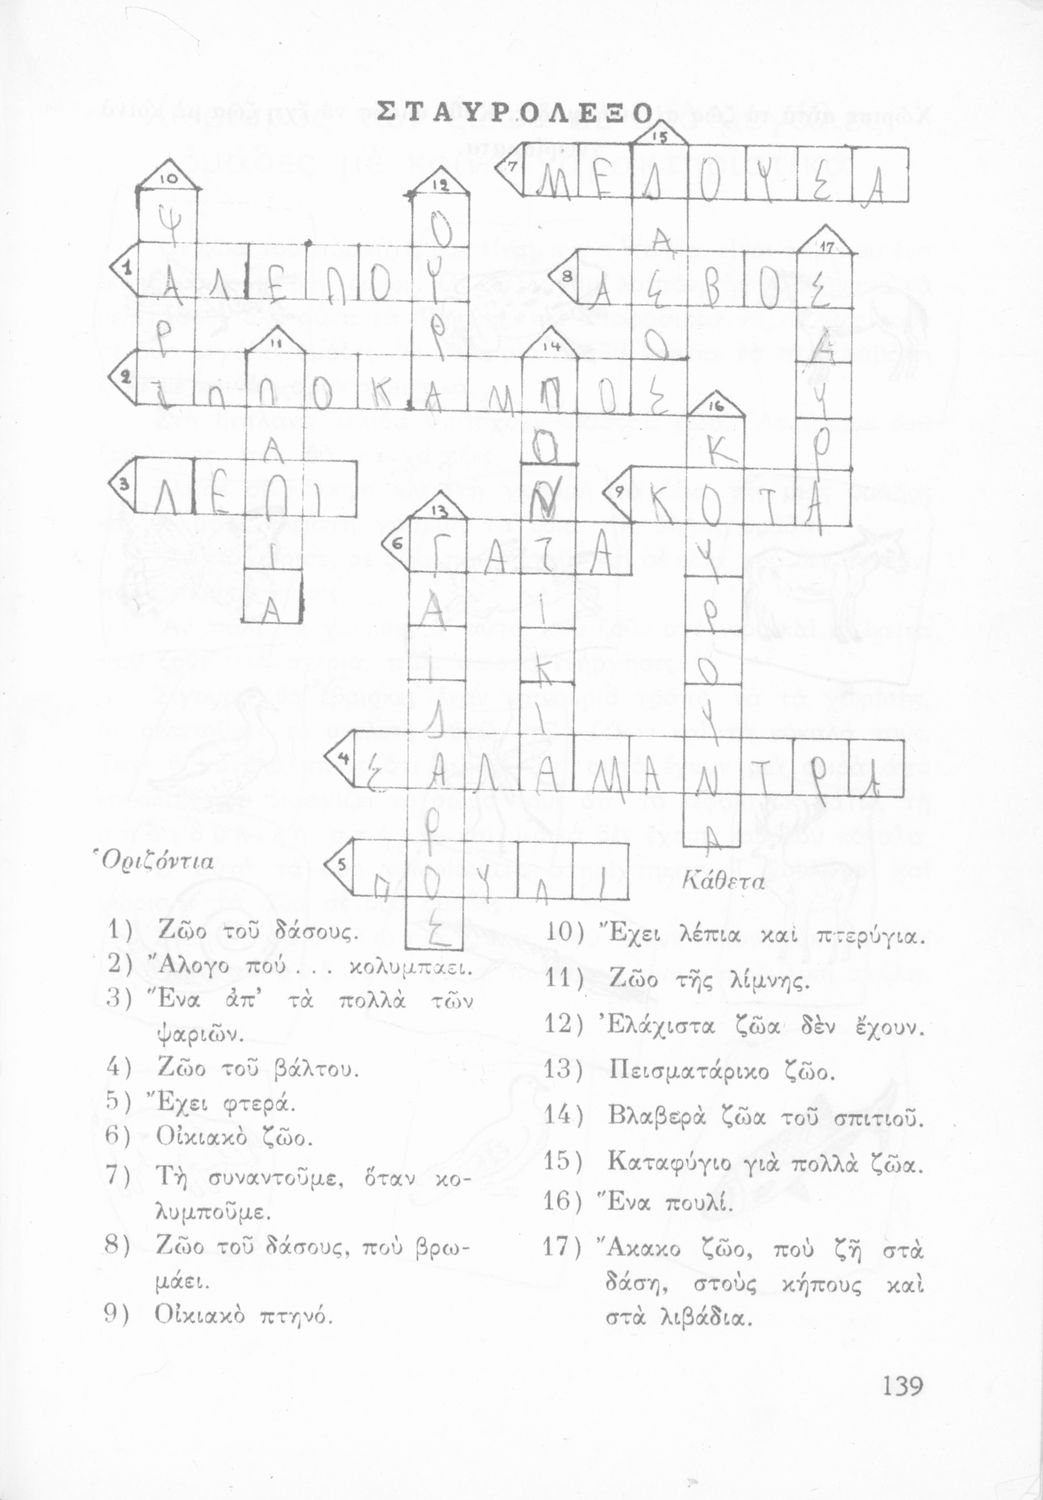 ΣΤΑΥΡΟΛΕΞΟ
15
7 ΜΕΔΟΥΣΑ
10
12
Ψ
Ο
Α
17
1 ΑΛΕΠΟΥ
Υ
8 ΑΣΒΟΣ
Ρ
11
Ρ
14
Ο
Α
2 ΙΠΠΟΚΑΜΠΟΣ
16
Υ
Α
Ο
Κ
Ρ
3 ΛΕΠΙ
13
Ν
9 ΚΟΤΑ
Ι
6 ΓΑΤΑ
Υ
Α
Α
Ι
Ρ
Ι
Κ
Ο
Δ
Ι
Υ
4 ΣΑΛΑΜΑΝΤΡΑ
Ρ
Α
5 ΠΟΥΛΙ
Σ
Ὁριζόντια
1) Ζῶο τοῦ δάσους.
2) Ἄλογο πού... κολυμπαει.
3) Ἕνα ἀπ' τὰ πολλὰ τῶν
ψαριῶν.
4) Ζῶο τοῦ βάλτου.
5) Ἔχει φτερά.
6) Οἰκιακὸ ζῶο.
7) Τὴ συναντοῦμε, ὅταν κο-
λυμποῦμε.
8) Ζῶο τοῦ δάσους, ποὺ βρω-
μάει.
9) Οἰκιακὸ πτηνό.
Κάθετα
10) Ἔχει λέπια καὶ πτερύγια.
11) Ζῶο τῆς λίμνης.
12) Ἐλάχιστα ζῶα δὲν ἔχουν.
13) Πεισματάρικο ζῶο.
14) Βλαβερὰ ζῶα τοῦ σπιτιοῦ.
15) Καταφύγιο γιὰ πολλὰ ζῶα.
16) Ἕνα πουλί.
17) Ἄκακο ζῶο, ποὺ ζῆ στὰ
δάση, στοὺς κήπους καὶ
στὰ λιβάδια.
139